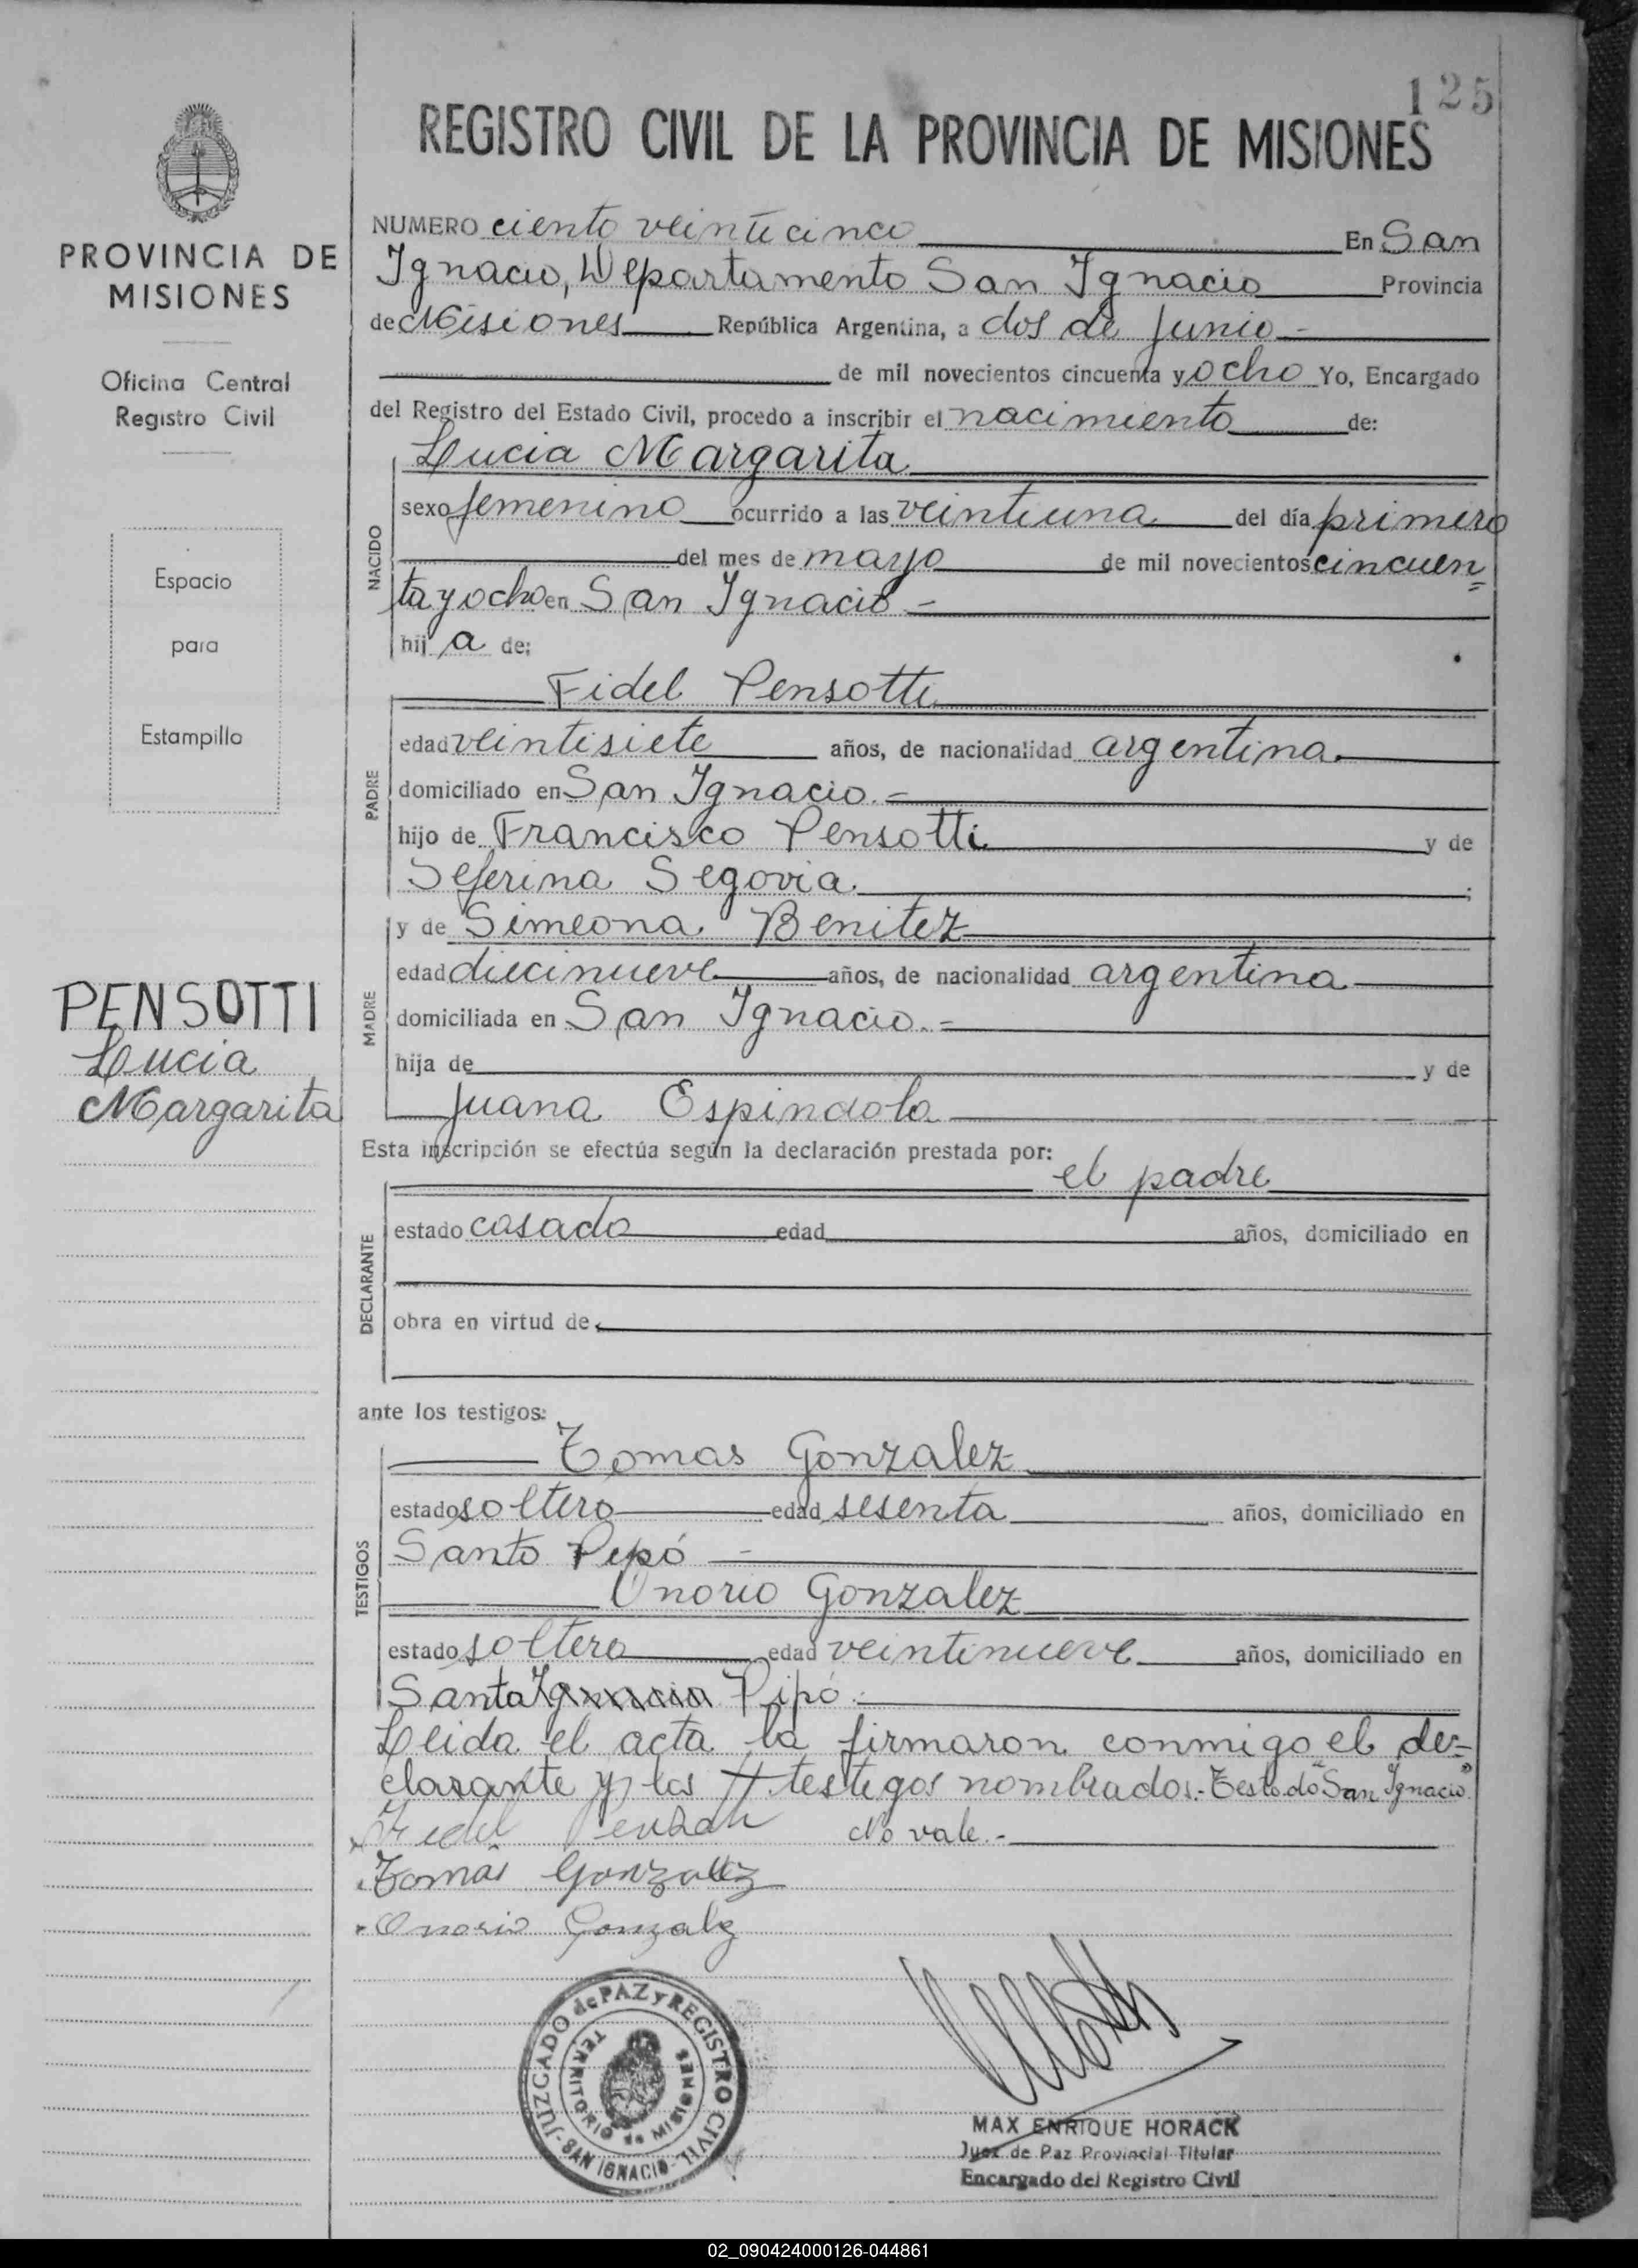 125
REGISTRO CIVIL DE LA PROVINCIA DE MISIONES
PROVINCIA DE
MISIONES
Oficina Central
Registro Civil
Espacio
para
Estampilla
PENSOTTI
Lucia
Margarita
NUMERO ciento veinticinco En San
Ignacio, Departamento San Ignacio Provincia
de Misiones República Argentina, a dos de Junio -
de mil novecientos cincuenta y ocho Yo, Encargado
del Registro del Estado Civil, procedo a inscribir el nacimiento de:
Lucia Margarita
NACIDO
sexo femenino ocurrido a las veintiuna del día primero
del mes de mayo de mil novecientos cincuen=
ta y ocho en San Ignacio -
hij a de:
Fidel Pensotti
PADRE
edad veintisiete años, de nacionalidad argentina.
domiciliado en San Ignacio.=
hijo de Francisco Pensotti y de
Seferina Segovia ;
y de Simeona Benitez
MADRE
edad diecinueve años, de nacionalidad argentina
domiciliada en San Ignacio.=
hija de y de
Juana Espindola
Esta inscripción se efectúa según la declaración prestada por:
el padre
DECLARANTE
estado casado edad años, domiciliado en
obra en virtud de
ante los testigos:
Tomas Gonzalez
TESTIGOS
estado soltero edad sesenta años, domiciliado en
Santo Pipó -
Onorio Gonzalez
estado soltero edad veintinueve años, domiciliado en
Santo Ignacio Pipó.
Leida el acta la firmaron conmigo el de=
clarante y los testigos nombrados.- Testado "San Ignacio"
Fidel No vale.-
Tomás Gonzalez
Onorio Gonzalez
JUZGADO de PAZ y REGISTRO CIVIL - SAN IGNACIO -
TERRITORIO de MISIONES
MAX ENRIQUE HORACK
Juez de Paz Provincial Titular
Encargado del Registro Civil
02_090424000126-044861